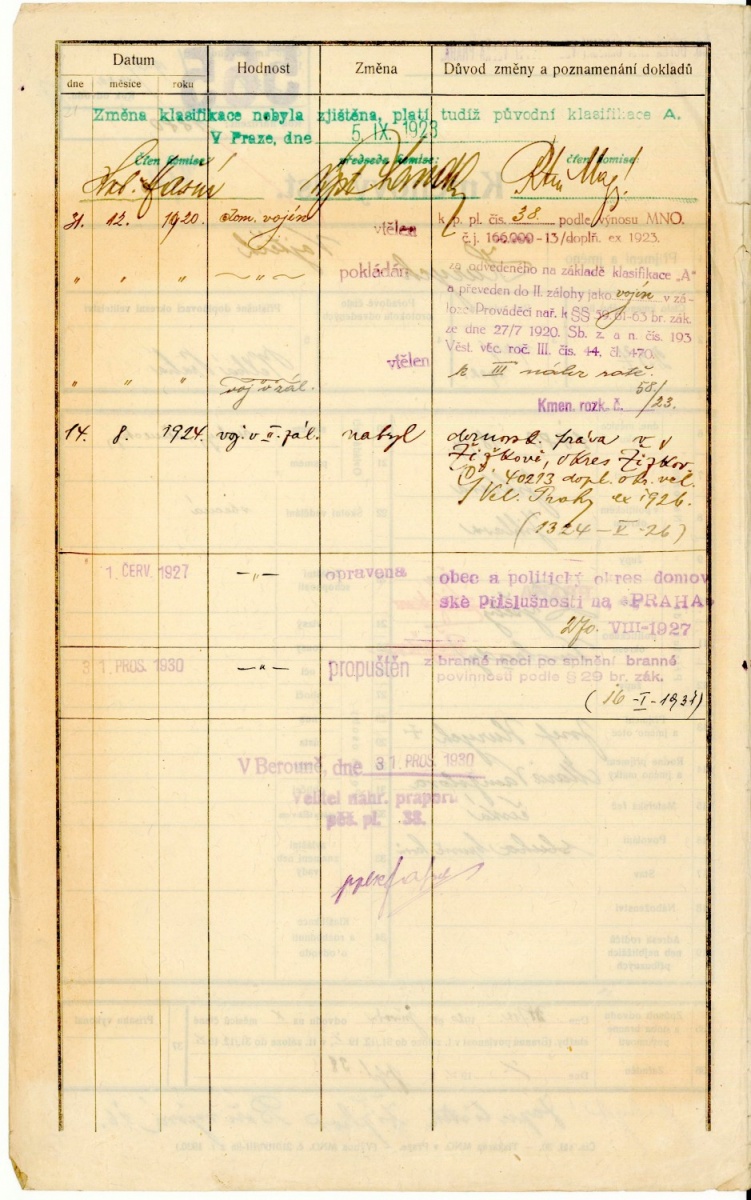 Datum
Hodnost
Změna
Důvod změny a poznamenání dokladů
dne měsíce roku
Změna klasifikace nebyla zjištěna, platí tudíž původní klasifikace A.
V Praze, dne 5. IX. 1923
Člen komise: předseda komise: člen komise:
31. 12. 1920. dom. vojín vtělen k p. pl. čís. 38. podle výnosu MNO.
č. j. 166.000-13/doplň. ex 1923.
" " " pokládán za odvedeného na základě klasifikace „A"
a převeden do II. zálohy jako vojín v zá-
loze Prováděcí nař. k §§ 59, 61-63 br. zák.
ze dne 27/7 1920. Sb. z. a n. čís. 193
Věst. věc. roč. III. čís. 44, čl. 470.
" " " voj. v zál. vtělen k III náhr. rotě.
Kmen. rozk. č. 58/23.
14. 8. 1924. voj. v II. zál. nabyl domovsk. práva v
Žižkově, okres Žižkov
Čj. 40213 dopl. okr. vel.
Vel. Prahy ex 1926.
(1324-V-26)
1. ČERV. 1927 —"— opravena obec a politický okres domov
ské příslušnosti na «PRAHA»
270. VIII-1927
31. PROS. 1930 —"— propuštěn z branné moci po splnění branné
povinnosti podle § 29 br. zák.
(16-I-1931)
V Berouně, dne 31. PROS. 1930
Velitel náhr. praporu
pěš. pl. 38.